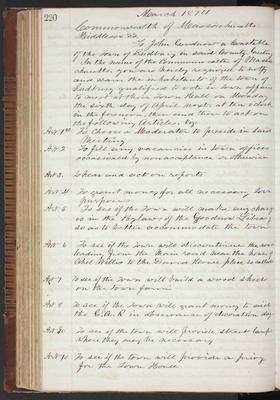 220
March 1874
Commonwealth of Massachusetts
Middlesex SS.
To John Goodnow a Constable
of the Town of Sudbury in said County Greeting
In the name of the Commonwealth of Massa
chusetts, you are hereby required to notify
and warn the inhabitants of the town of
Sudbury qualified to vote in town affairs
to meet at their Town Hall on Monday
the sixth day of April next at ten o'clock
in the forenoon, then and there to act on
the following Articles. Viz
Art 1st To Choose a Moderator to preside in said
Meeting
Art 2 To fill any vacancies in town offices
occasioned by nonacceptance or otherwise
Art 3. To hear and act on reports
Art 4 To grant money for all necessary town
purposes
Art 5 To see if the Town will make any change
in the Bylaws of the Goodnow Library
so as to better accommodate the town
Art 6 To see if the Town will discontinue the road
leading from the Main road near the house of
Abel Willis to the Leonard Howe place so called
Art 7 To see if the Town will build a wood shed
on the town farm
Art 8 To see if the Town will grant money to aid
the G.A.R. in observance of decoration day
Art 9 To see if the town will provide street lamps
where they may be necessary
Art 10. To see if the town will provide a privy
for the Town House